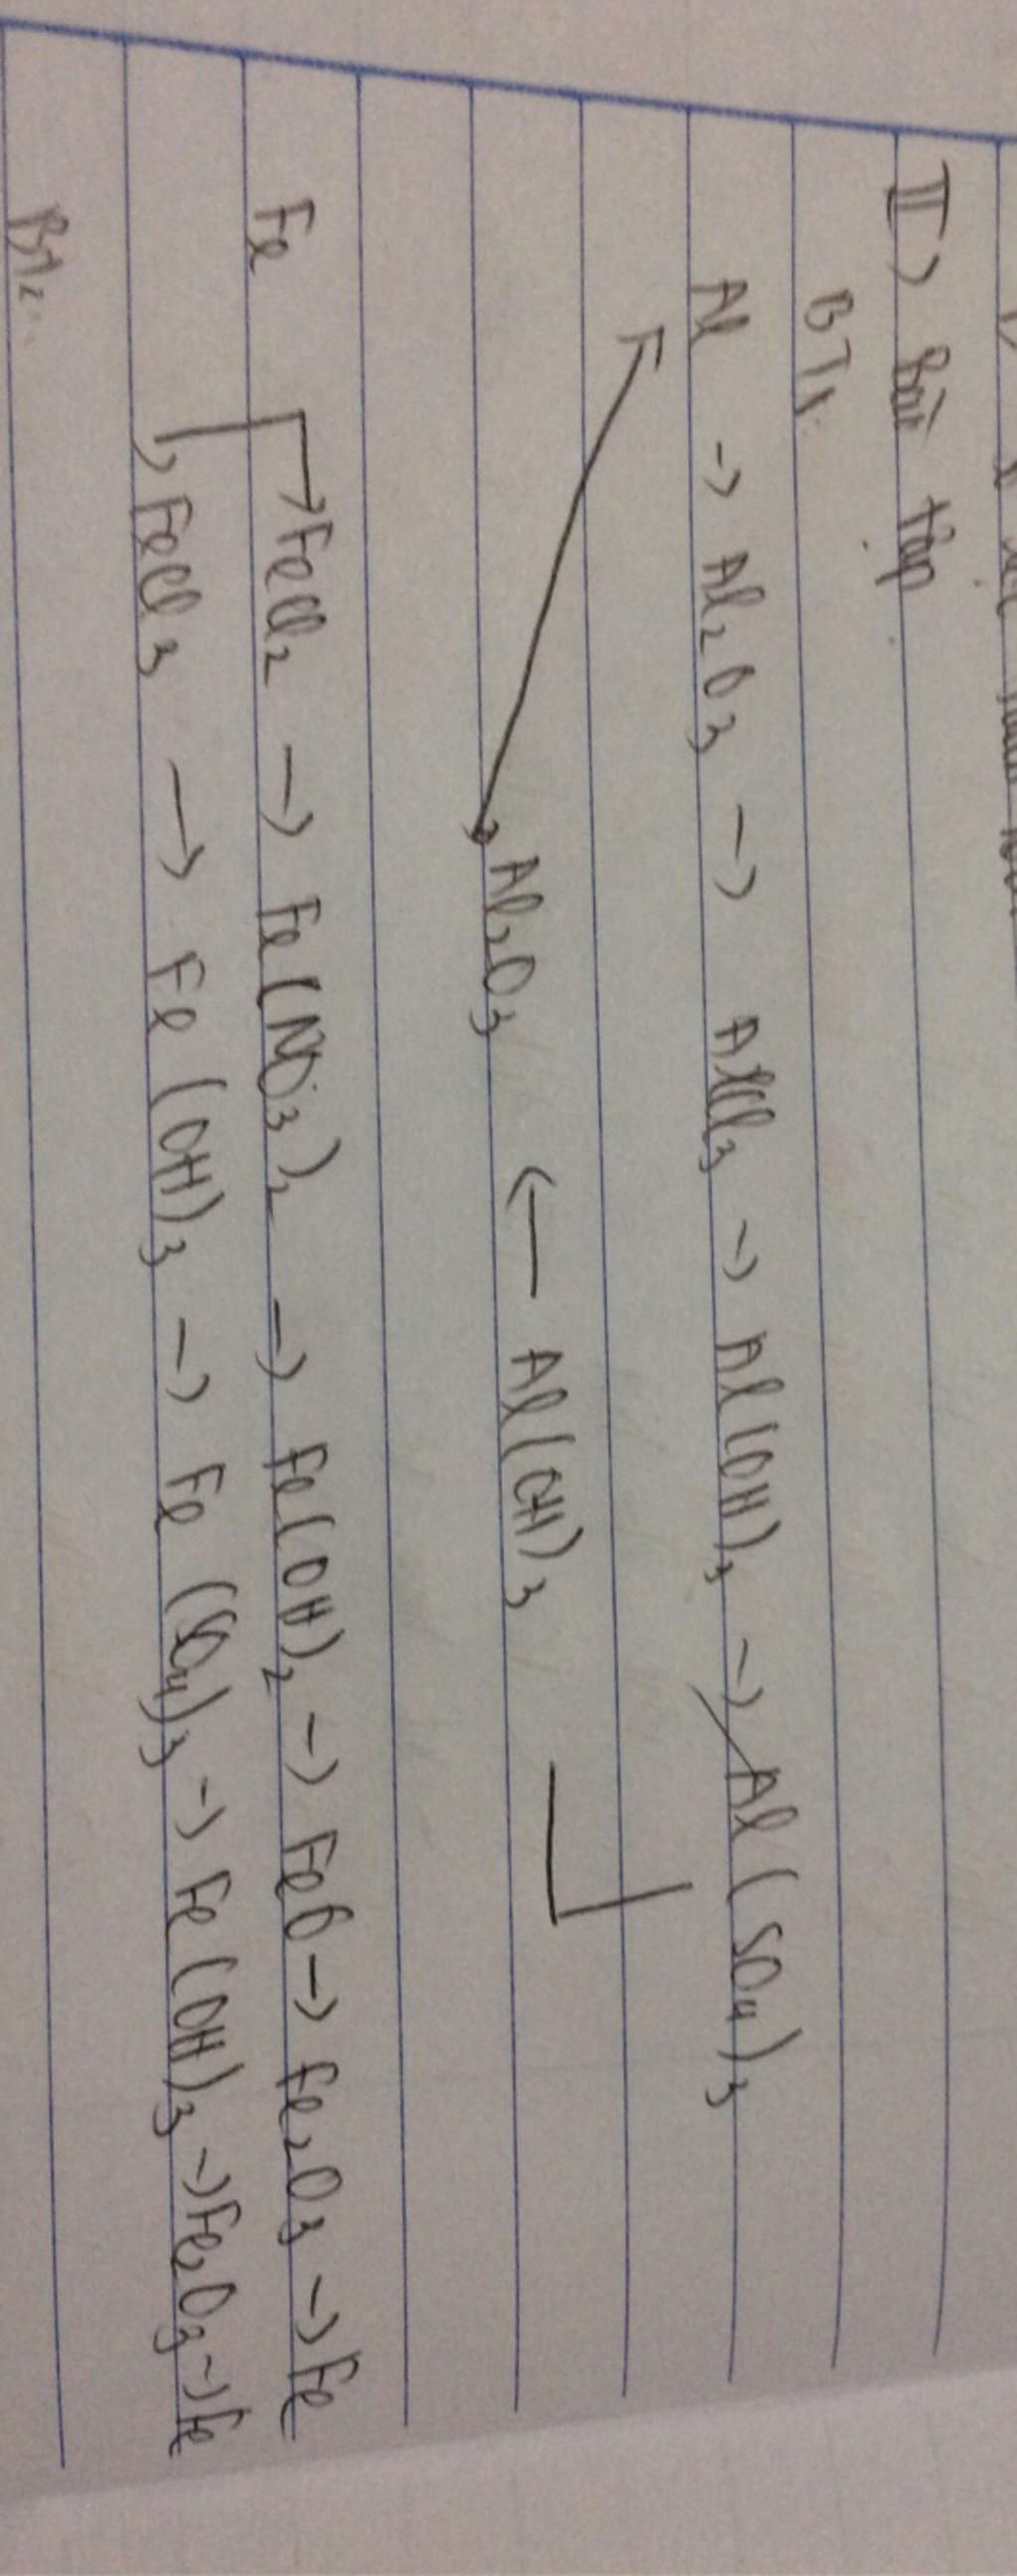 II) Bài tập
BT1:
Al -> Al2O3 -> AlCl3 -> Al(OH)3 -> Al(SO4)3
Al2O3 <- Al(OH)3
Fe -> FeCl2 -> Fe(NO3)2 -> Fe(OH)2 -> FeO -> Fe2O3 -> Fe
-> FeCl3 -> Fe(OH)3 -> Fe(SO4)3 -> Fe(OH)3 -> Fe2O3 -> Fe
BT2: